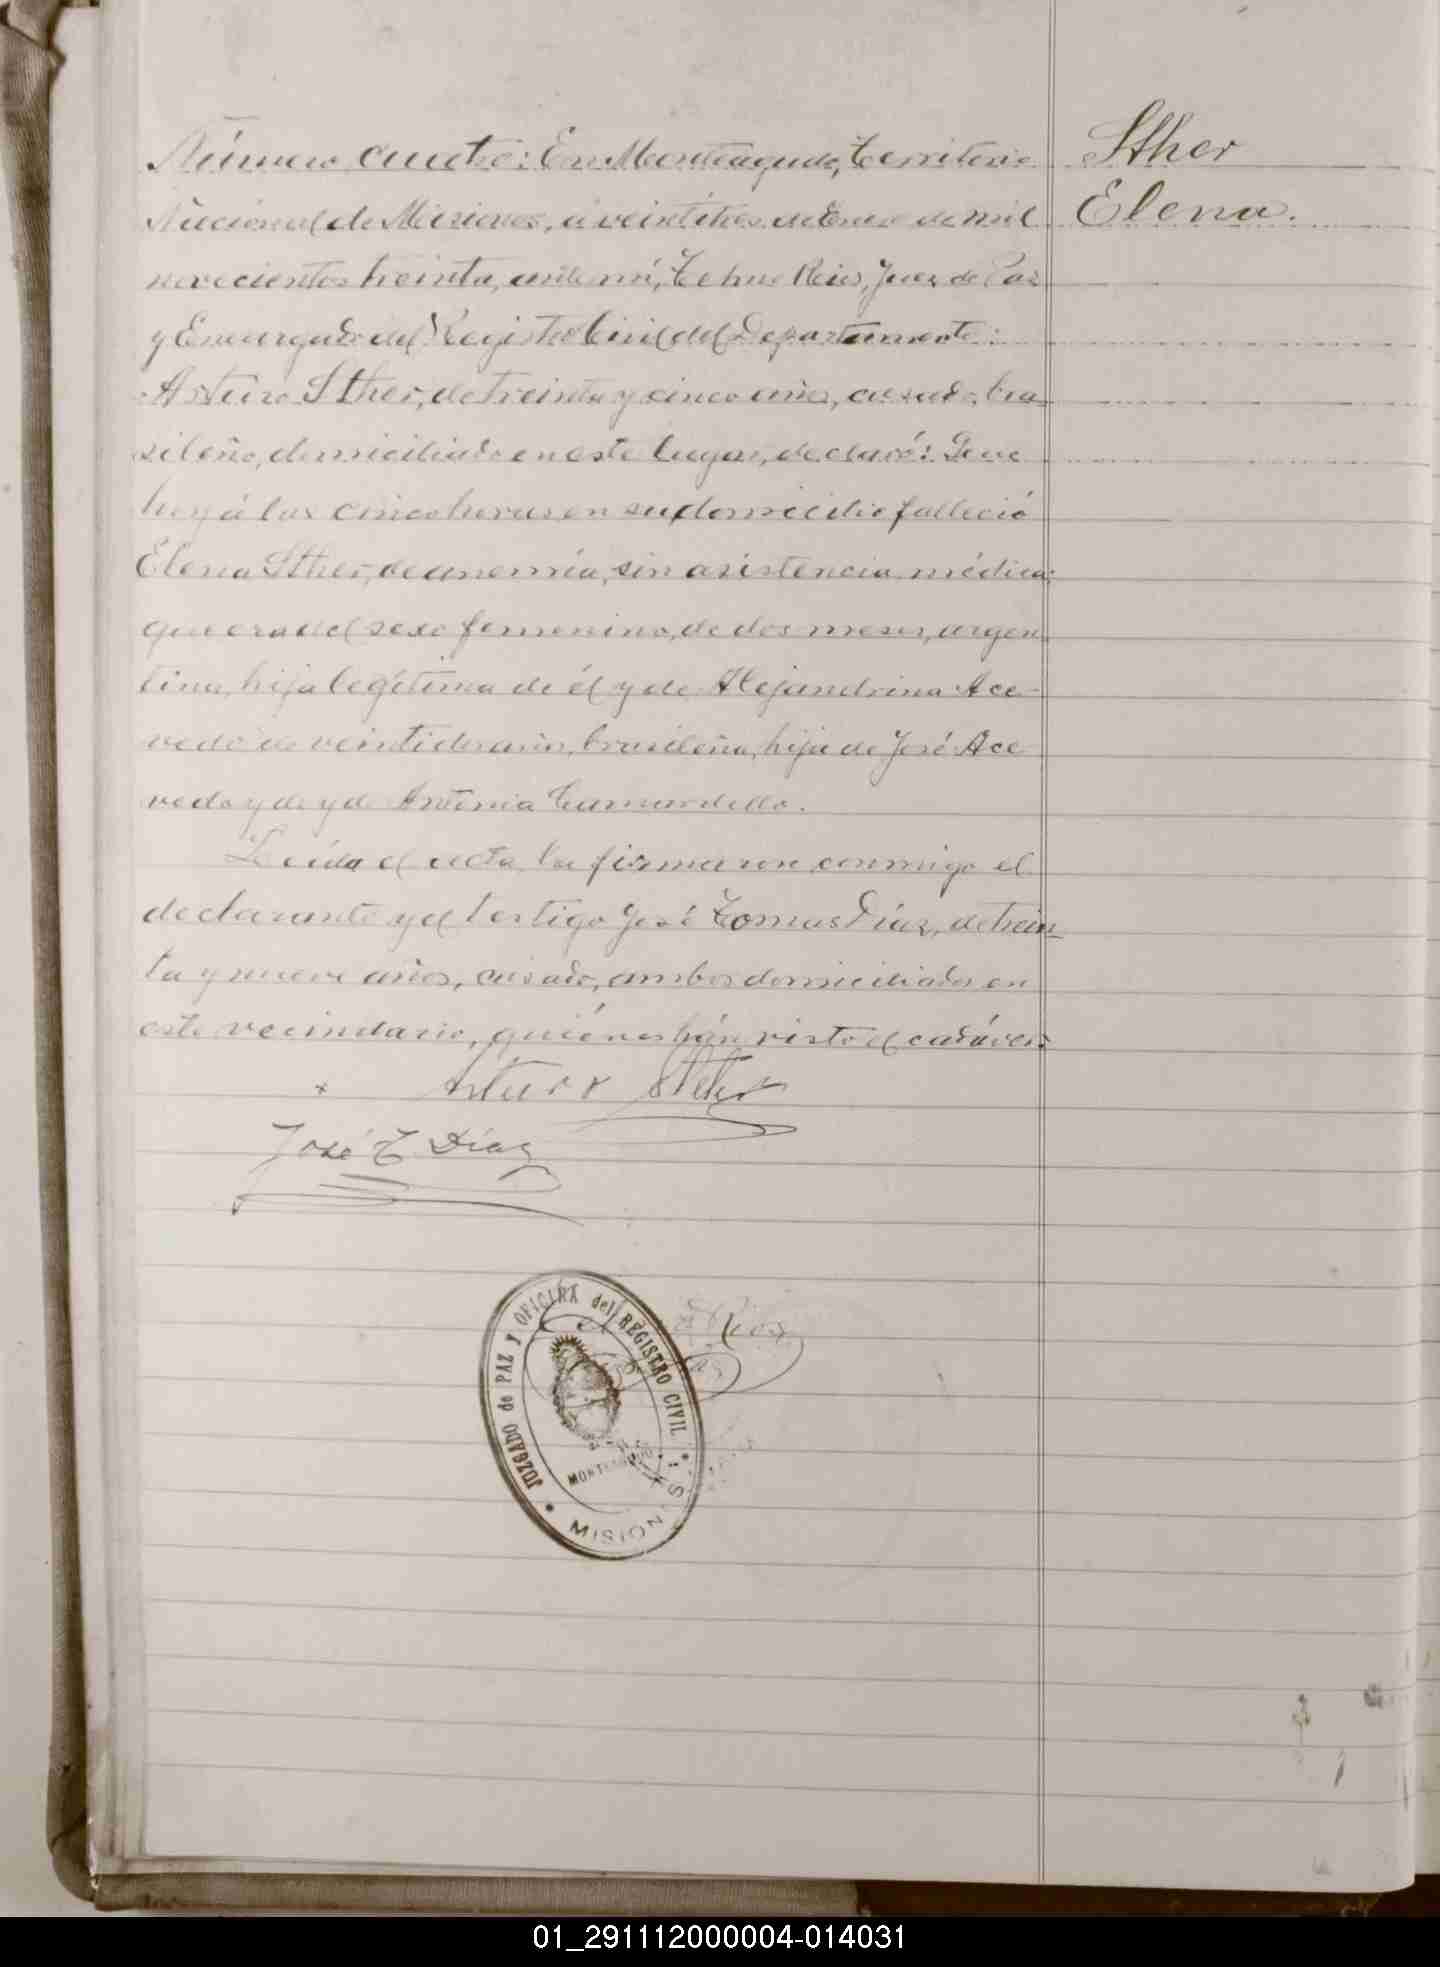 Número cuatro: En Monteagudo, Territorio
Nacional de Misiones, á veintitres de Enero de mil
novecientos treinta, ante mí, Juez de Paz
y Encargado del Registro Civil del Departamento:
Arturo Sther, de treinta y cinco años, casado, bra-
sileño, domiciliado en este lugar, declaró: Que
hoy á las cinco horas en su domicilio falleció
Elena Sther, de anemia, sin asistencia médica;
que era del sexo femenino, de dos meses, argen-
tina, hija legítima de él y de Alejandrina Ace-
vedo de veintidos años, brasileña, hija de José Ace-
vedo y de y de Antonia
Leída el acta la firmaron conmigo el
declarante y el testigo José Tomas Díaz, de trein-
ta y nueve años, casado, ambos domiciliados en
este vecindario, quiénes hán visto el cadáver:
x Arturo Sther
José T Díaz
JUZGADO de PAZ y OFICINA del REGISTRO CIVIL
MONTEAGUDO
MISIONES
Sther
Elena.
01_291112000004-014031